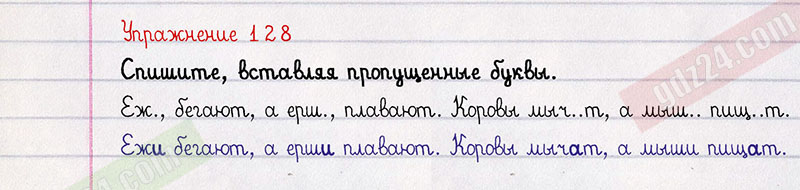 Упражнение 128
Спишите, вставляя пропущенные буквы.
Еж., бегают, а ерш., плавают. Коровы мыч..т, а мыш.. пищ..т.
Ежи бегают, а ерши плавают. Коровы мычат, а мыши пищат.
gdz24.com